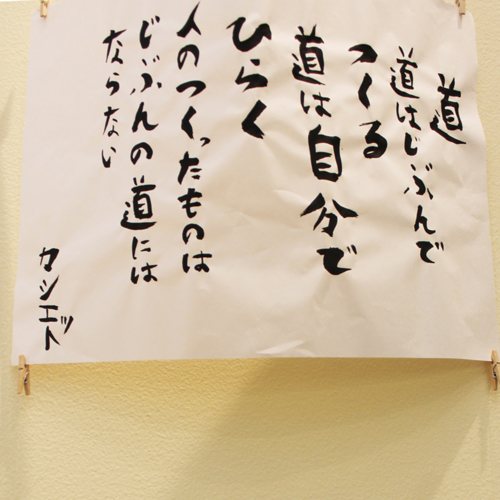 道
道はじぶんで
つくる
道は自分で
ひらく
人のつくったものは
じぶんの道には
ならない
カシエット